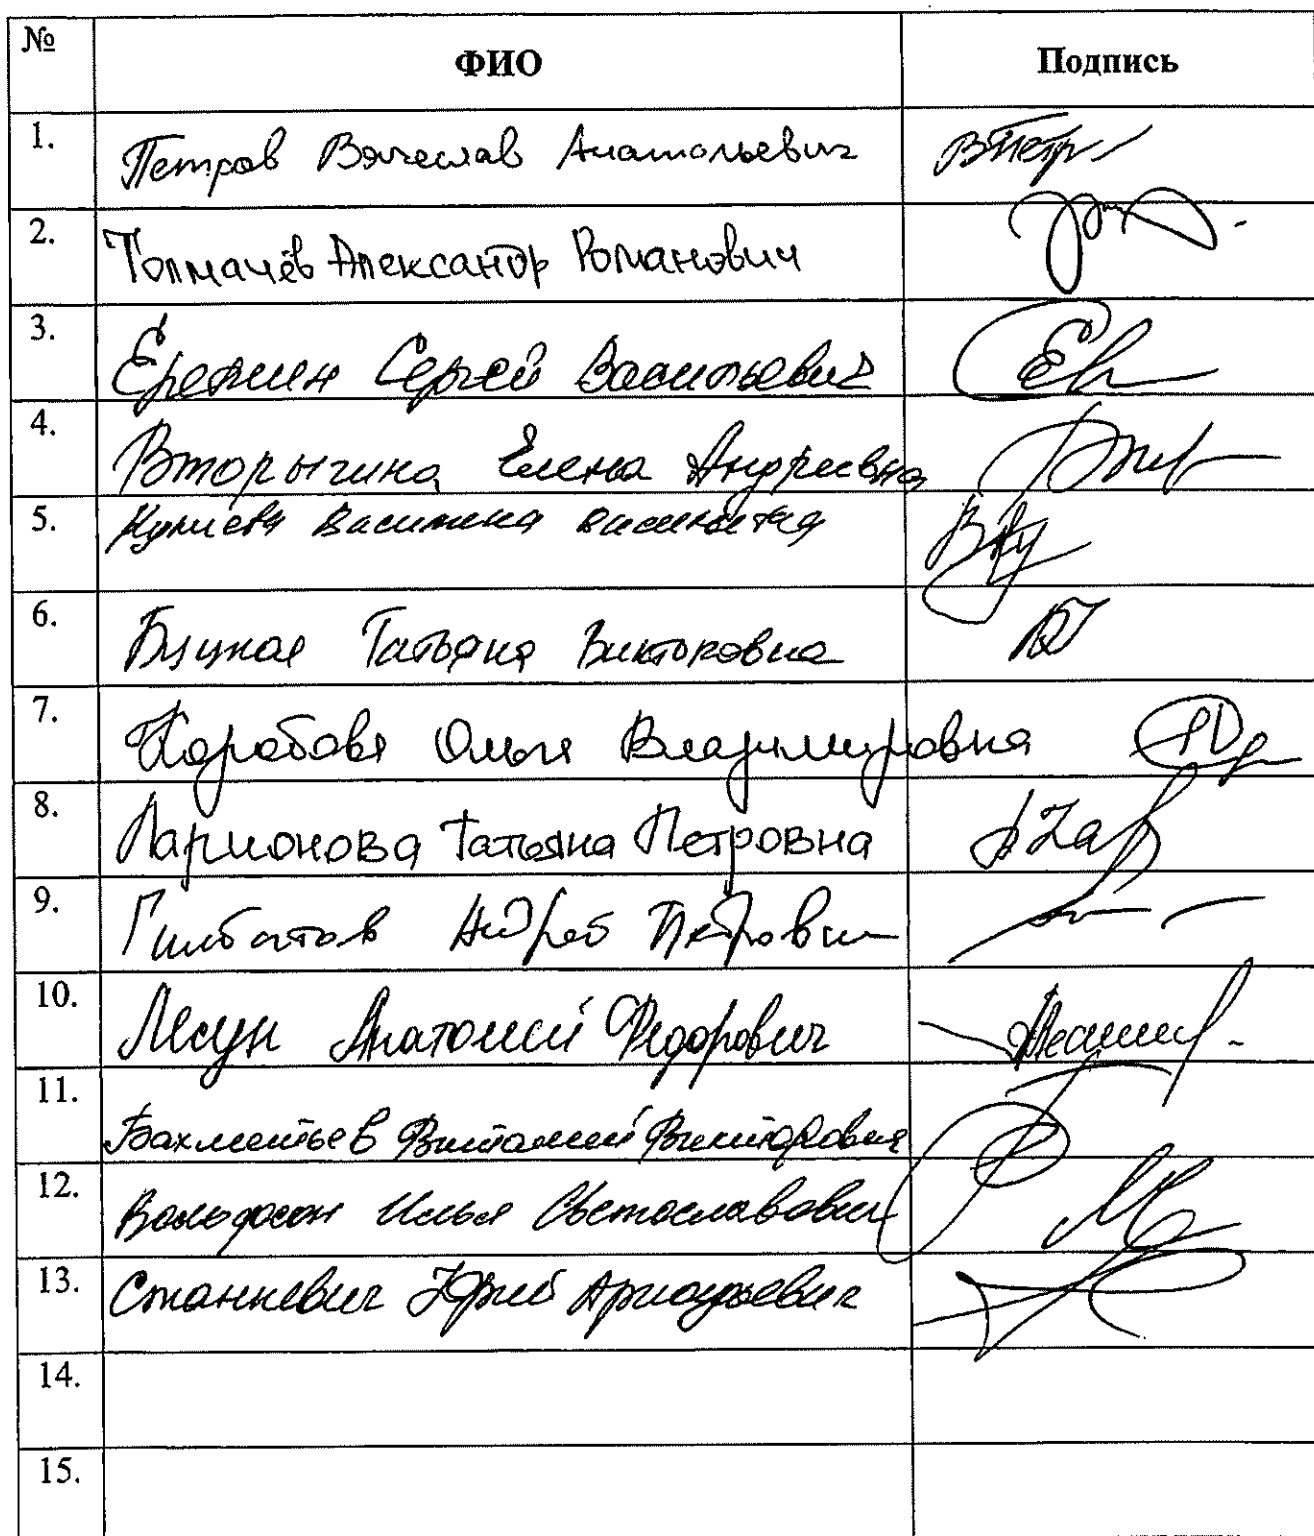 № ФИО Подпись
1. Петров Вячеслав Анатольевич
2. Толмачёв Александр Романович
3. Еремин Сергей Васильевич
4. Вторыгина Елена Андреевна
5.
6. Буцкая Татьяна Викторовна
7. Коробова Ольга Владимировна
8. Ларионова Татьяна Петровна
9. Андрей Петрович
10. Лесун Анатолий Федорович
11. Бахметьев Виталий Викторович
12. Вольфсон Илья Светославович
13. Станкевич Юрий Аркадьевич
14.
15.